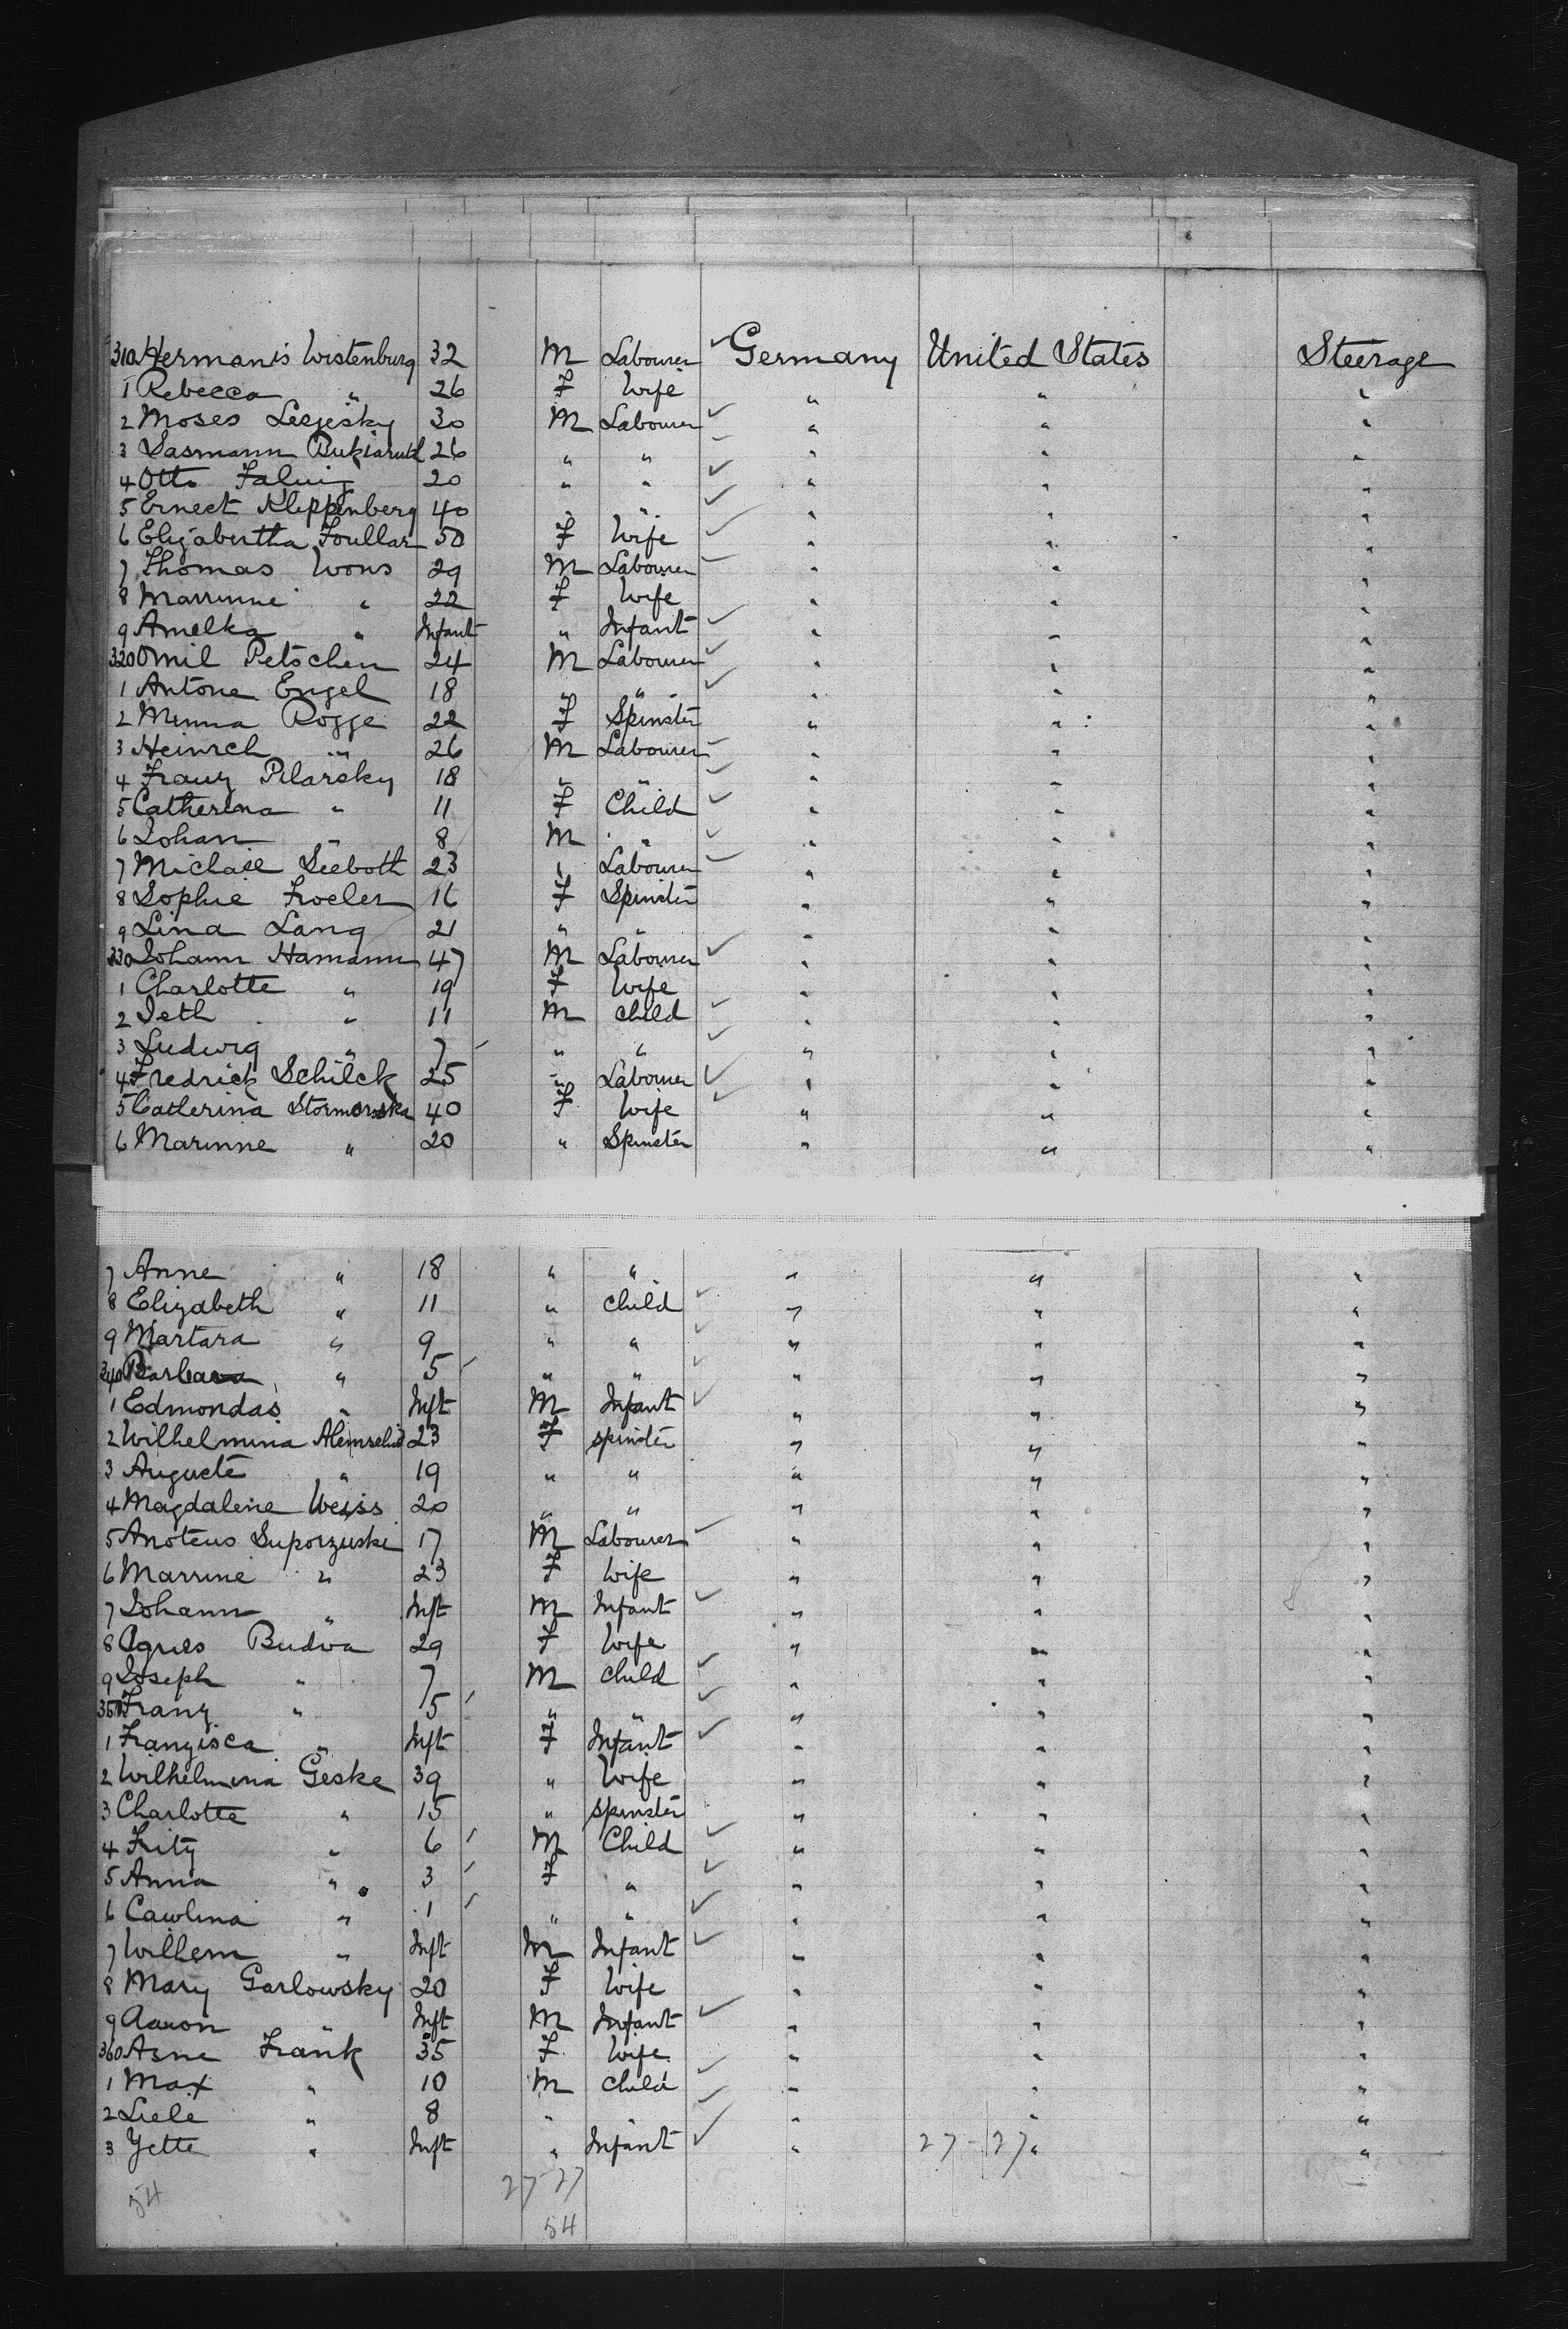 310 Hermanis Wistenburg 32 M Labourer ✓ Germany United States Steerage
1 Rebecca " 26 F Wife " " "
2 Moses 30 M Labourer ✓ " " "
3 Sasmann 26 " " ✓ " " "
4 Otto Faluig 20 " " ✓ " " "
5 Ernest Kleppenberg 40 " " ✓ " " "
6 Elizabertha Foullar 50 F Wife ✓ " " "
7 Thomas Wons 29 M Labourer ✓ " " "
8 Marrinne " 22 F Wife " " "
9 Amelka " Infant " Infant ✓ " " "
320 Omil Petschen 24 M Labourer ✓ " " "
1 Antone Engel 18 " " ✓ " " "
2 Minna Rogge 22 F Spinster " " "
3 Heinrch " 26 M Labourer ✓ " " "
4 Franz Pilarsky 18 " " ✓ " " "
5 Catherina " 11 F Child ✓ " " "
6 Johan " 8 M " ✓ " " "
7 Michael Seeboth 23 " Labourer ✓ " " "
8 Sophie Froeler 16 F Spinster " " "
9 Lina Lang 21 " " " " "
330 Johann Hamann 47 M Labourer ✓ " " "
1 Charlotte " 19 F Wife " " "
2 Jeth " 11 M child ✓ " " "
3 Ludwig " 7 " " ✓ " " "
4 Fredrick Schilck 25 " Labourer ✓ " " "
5 Catherina Stormorska 40 F Wife ✓ " " "
6 Marinne " 20 " Spinster " " "
7 Anne " 18 " " " " "
8 Elizabeth " 11 " child ✓ " " "
9 Martara " 9 " " ✓ " " "
340 Barbara " 5 " " ✓ " " "
1 Edmondas " Inft M Infant ✓ " " "
2 Wilhelmina 23 F spinster " " "
3 Auguste " 19 " " " " "
4 Magdalene Weiss 20 " " " " "
5 Anoteus Suporzuski 17 M Labourer ✓ " " "
6 Marrine " 23 F Wife " " "
7 Johann " Inft M Infant ✓ " " "
8 Agnes Budva 29 F Wife " " "
9 Joseph " 7 M child ✓ " " "
350 Franz " 5 " " ✓ " " "
1 Franzisca " Inft F Infant ✓ " " "
2 Wilhelmina Geske 39 " Wife " " "
3 Charlotte " 15 " spinster " " "
4 Fritz " 6 M Child ✓ " " "
5 Anna " 3 F " ✓ " " "
6 Cawlina " 1 " " ✓ " " "
7 Wilhem " Inft M Infant ✓ " " "
8 Mary Garlowsky 20 F Wife " " "
9 Aaron " Inft M Infant ✓ " " "
360 Asne Frank 35 F Wife " " "
1 Max " 10 M child ✓ " " "
2 Liele " 8 " " ✓ " " "
3 Yette " Inft " Infant ✓ " 27-27 " "
54 27-27
54